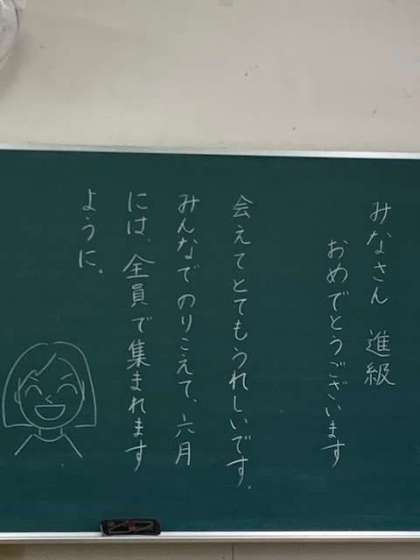 みなさん 進級
おめでとうございます
会えてとてもうれしいです。
みんなでのりこえて、六月
には、全員で集まれます
ように。